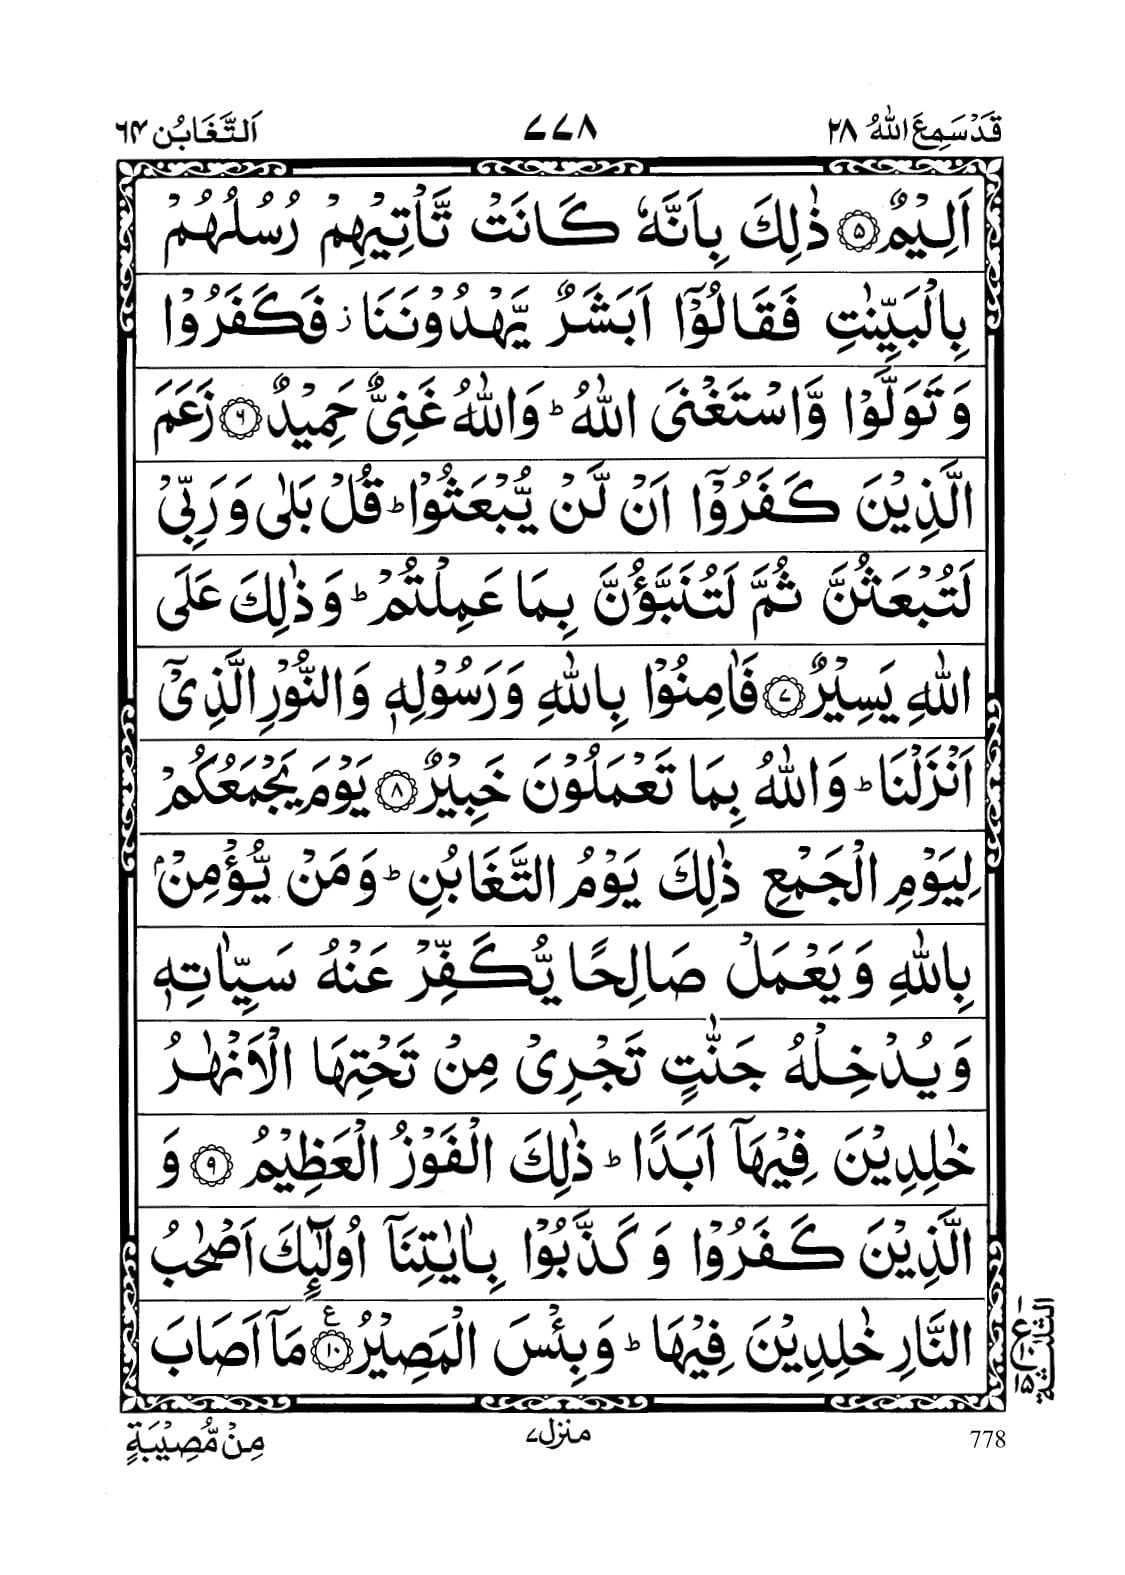 قَدْ سَمِعَ اللّٰهُ ٢٨
٧٧٨
اَلتَّغَابُن ٦٤
اَلِيْمٌ ﴿٥﴾ ذٰلِكَ بِاَنَّهٗ كَانَتْ تَّاْتِيْهِمْ رُسُلُهُمْ
بِالْبَيِّنٰتِ فَقَالُوْۤا اَبَشَرٌ يَّهْدُوْنَنَا ز فَكَفَرُوْا
وَ تَوَلَّوْا وَّاسْتَغْنَى اللّٰهُ ؕ وَاللّٰهُ غَنِىٌّ حَمِيْدٌ ﴿٦﴾ زَعَمَ
الَّذِيْنَ كَفَرُوْۤا اَنْ لَّنْ يُّبْعَثُوْا ؕ قُلْ بَلٰى وَ رَبِّىْ
لَتُبْعَثُنَّ ثُمَّ لَتُنَبَّؤُنَّ بِمَا عَمِلْتُمْ ؕ وَ ذٰلِكَ عَلَى
اللّٰهِ يَسِيْرٌ ﴿٧﴾ فَاٰمِنُوْا بِاللّٰهِ وَ رَسُوْلِهٖ وَ النُّوْرِ الَّذِىْۤ
اَنْزَلْنَا ؕ وَاللّٰهُ بِمَا تَعْمَلُوْنَ خَبِيْرٌ ﴿٨﴾ يَوْمَ يَجْمَعُكُمْ
لِيَوْمِ الْجَمْعِ ذٰلِكَ يَوْمُ التَّغَابُنِ ؕ وَ مَنْ يُّؤْمِنْۢ
بِاللّٰهِ وَ يَعْمَلْ صَالِحًا يُّكَفِّرْ عَنْهُ سَيِّاٰتِهٖ
وَ يُدْخِلْهُ جَنّٰتٍ تَجْرِىْ مِنْ تَحْتِهَا الْاَنْهٰرُ
خٰلِدِيْنَ فِيْهَاۤ اَبَدًا ؕ ذٰلِكَ الْفَوْزُ الْعَظِيْمُ ﴿٩﴾ وَ
الَّذِيْنَ كَفَرُوْا وَ كَذَّبُوْا بِاٰيٰتِنَاۤ اُولٰٓئِكَ اَصْحٰبُ
النَّارِ خٰلِدِيْنَ فِيْهَا ؕ وَ بِئْسَ الْمَصِيْرُ ﴿١٠﴾ ع مَاۤ اَصَابَ
الثلثة
ع
١٠
١٥
778
منزل ٧
مِنْ مُّصِيْبَةٍ